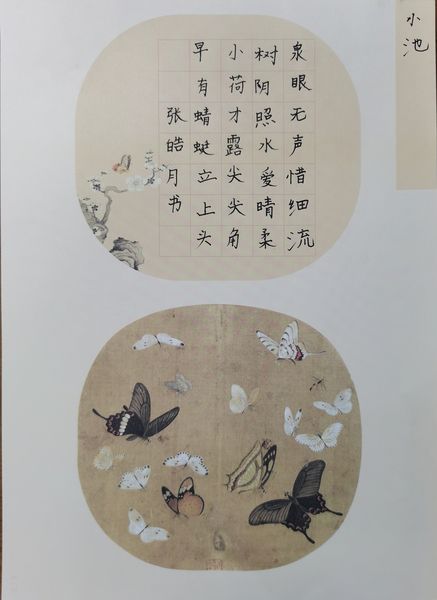 小池
泉眼无声惜细流
树阴照水爱晴柔
小荷才露尖尖角
早有蜻蜓立上头
张皓月书